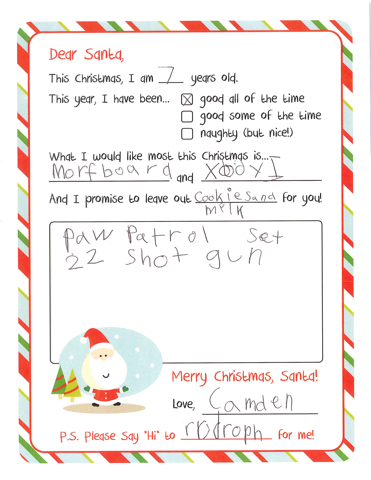 Dear Santa,
This Christmas, I am 7 years old.
This year, I have been... ☒ good all of the time
☐ good some of the time
☐ naughty (but nice!)
What I would like most this Christmas is...
Morfboard and Xbox I
And I promise to leave out Cookies and for you!
milk
Paw Patrol Set
22 shot gun
Merry Christmas, Santa!
Love, Camden
P.S. Please Say "Hi" to rudroph for me!